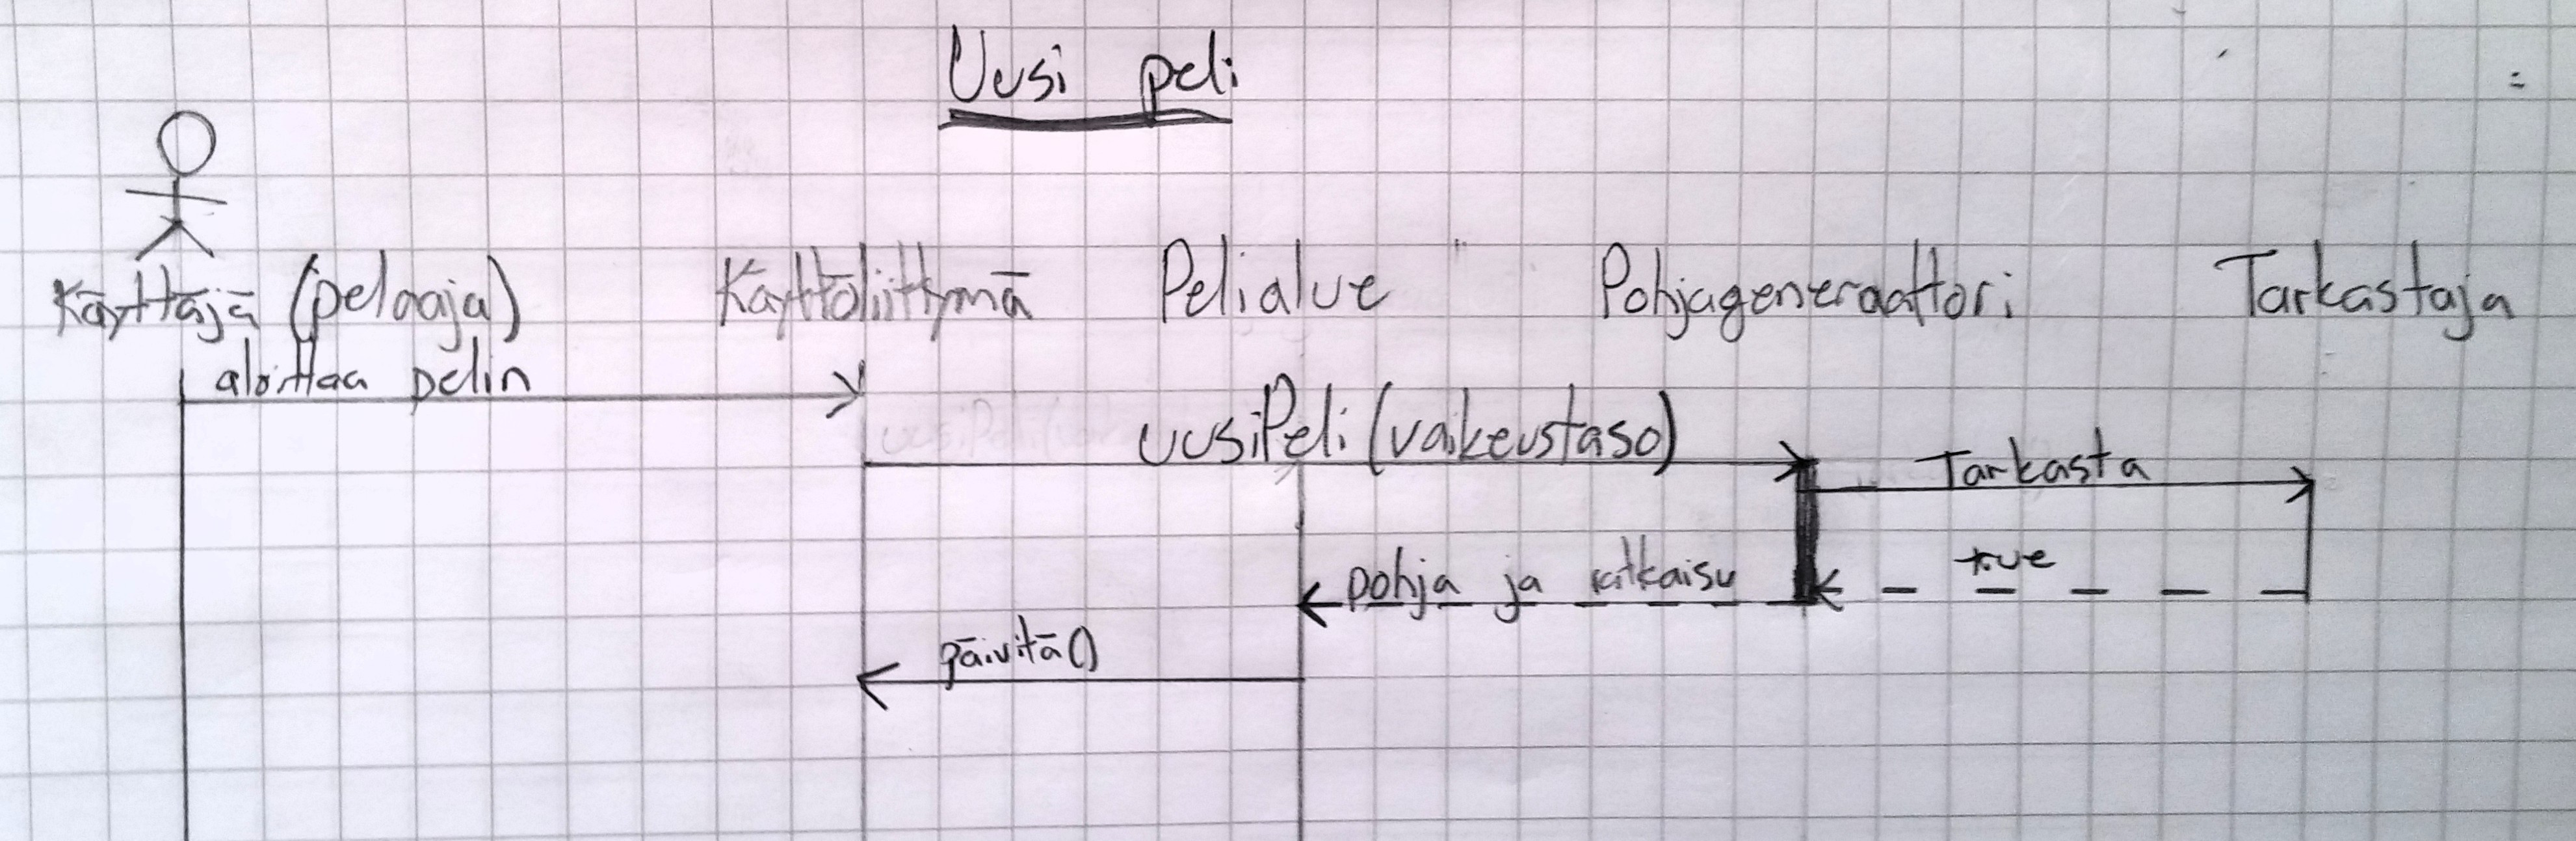 Uusi peli
Käyttäjä (pelaaja) Käyttöliittymä Pelialue Pohjageneraattori Tarkastaja
aloittaa pelin
uusiPeli (vaikeustaso)
Tarkasta
true
pohja ja ratkaisu
päivitä()